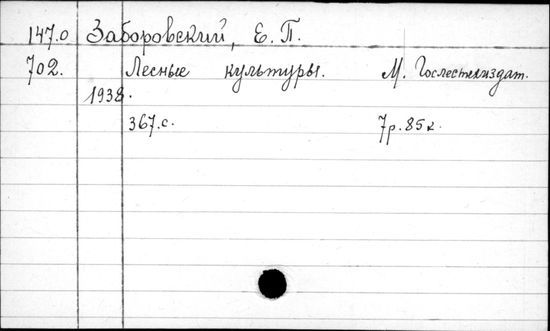 147.0 Заборовский, Е. П.
702. Лесные культуры. М. Гослестехиздат.
1938.
367.с. 7р.85к.